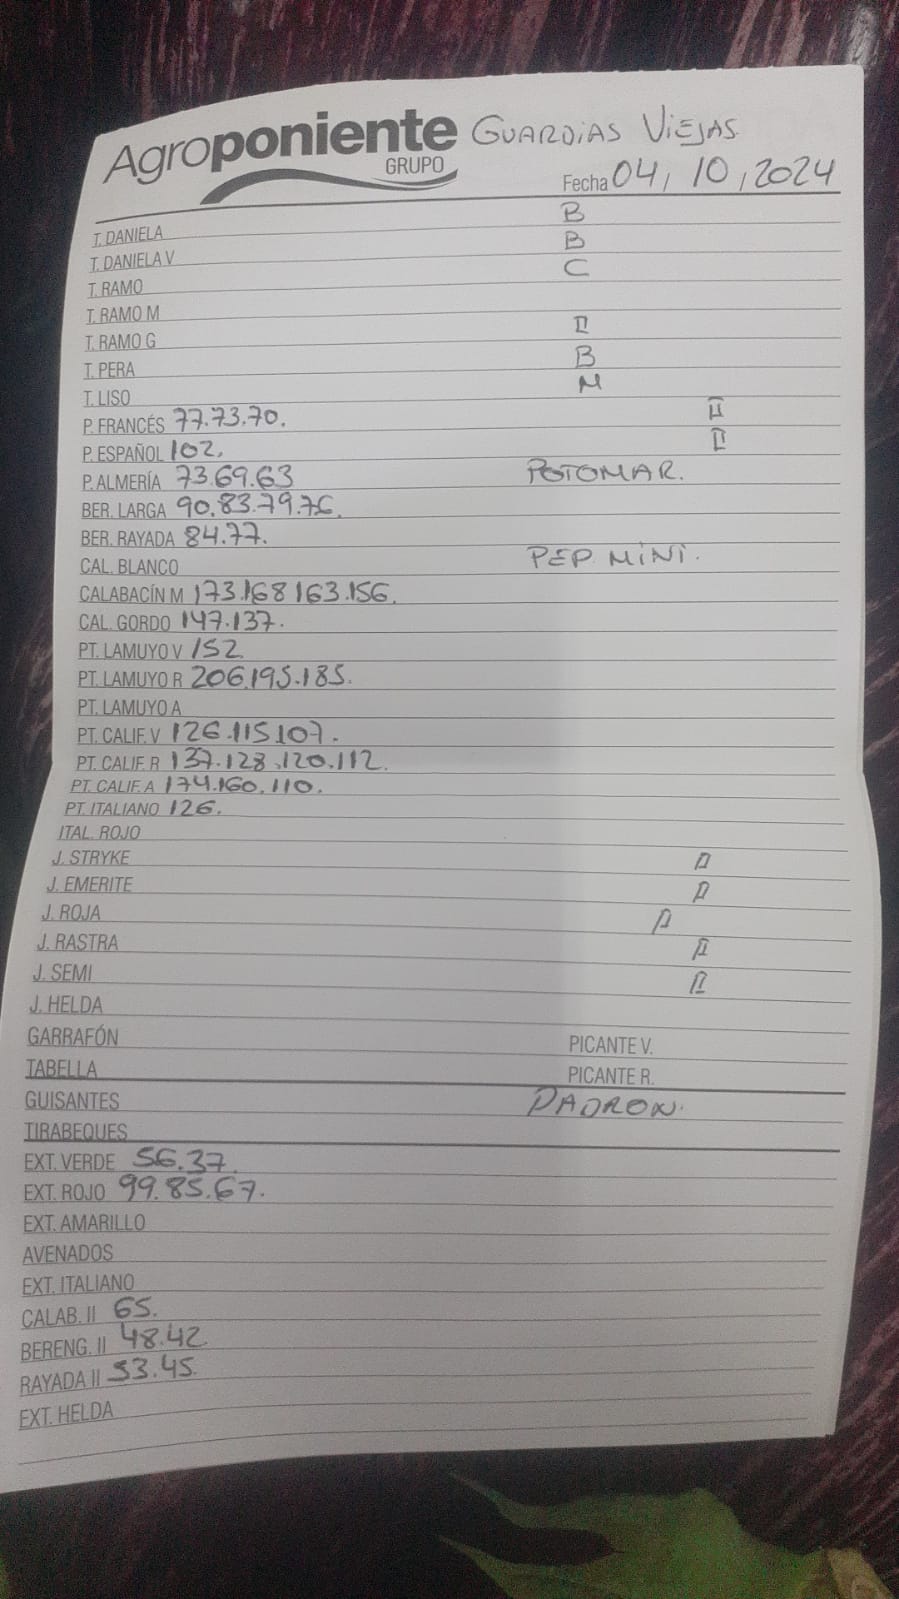 Agroponiente GUARDIAS VIEJAS.
GRUPO
Fecha 04, 10, 2024
T. DANIELA B
T. DANELA V B
T. RAMO C
T. RAMO M
T. RAMO G II
T. PERA B
T. LISO M
P. FRANCÉS 77.73.70. II
P. ESPAÑOL 102. II
P. ALMERÍA 73.69.63 POTOMAR.
BER. LARGA 90.83.79.76.
BER. RAYADA 84.77.
CAL. BLANCO PEP MINI.
CALABACÍN M 173.168 163.156.
CAL. GORDO 147.137.
PT. LAMUYO V 152
PT. LAMUYO R 206.195.185.
PT. LAMUYO A
PT. CALIF. V 126.115.107.
PT. CALIF. R 137.128.120.112.
PT. CALIF. A 174.160.110.
PT. ITALIANO 126.
ITAL. ROJO
J. STRYKE II
J. EMERITE II
J. ROJA II
J. RASTRA II
J. SEMI II
J. HELDA
GARRAFÓN PICANTE V.
TABELLA PICANTE R.
GUISANTES PADRON.
TIRABEQUES
EXT. VERDE 56.37.
EXT. ROJO 99.85.67.
EXT. AMARILLO
AVENADOS
EXT. ITALIANO
CALAB. II 65.
BERENG. II 48.42
RAYADA II 53.45.
EXT. HELDA